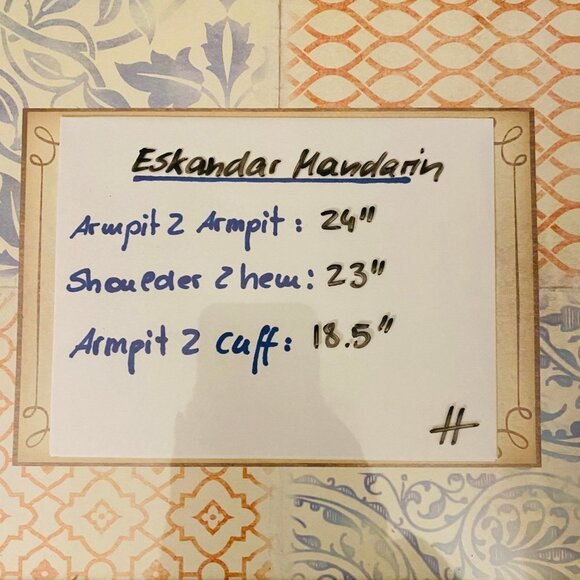 Eskandar Mandarin
Armpit 2 Armpit: 24"
Shoulder 2 hem: 23"
Armpit 2 cuff: 18.5"
H